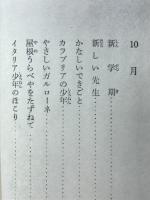 10月
新学期
新しい先生
かなしいできごと
カラブリアの少年
やさしいガルローネ
屋根うらべやをたずねて
イタリア少年のほこり